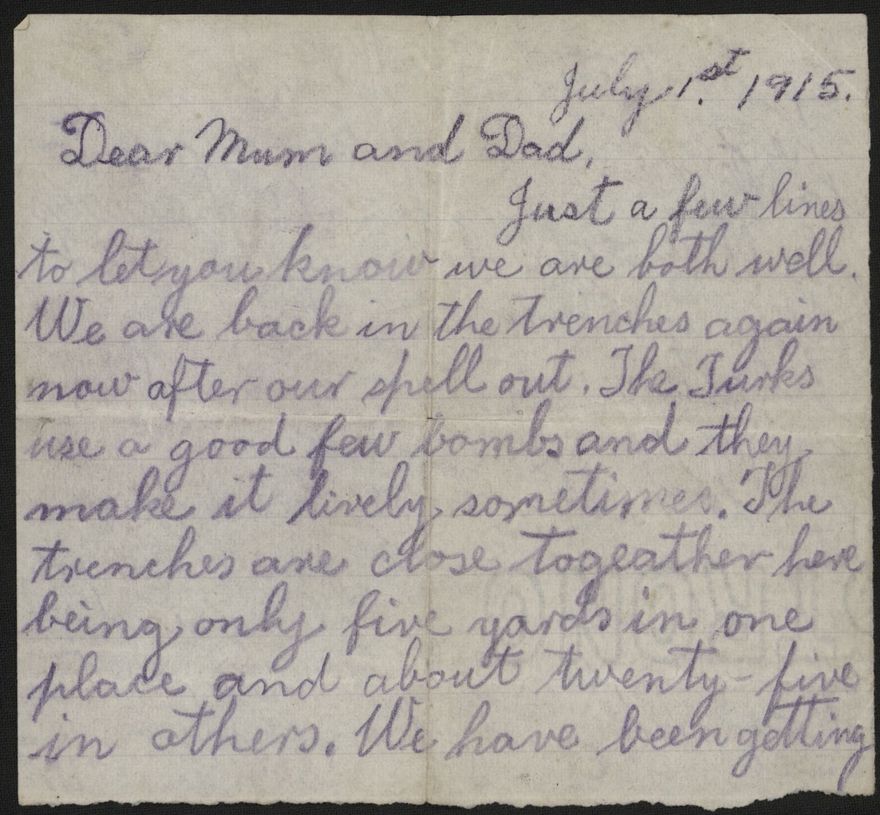 July 1.st 1915.
Dear Mum and Dad,
Just a few lines
to let you know we are both well.
We are back in the trenches again
now after our spell out. The Turks
use a good few bombs and they
make it lively sometimes. The
trenches are close togeather here
being only five yards in one
place and about twenty-five
in others. We have been getting